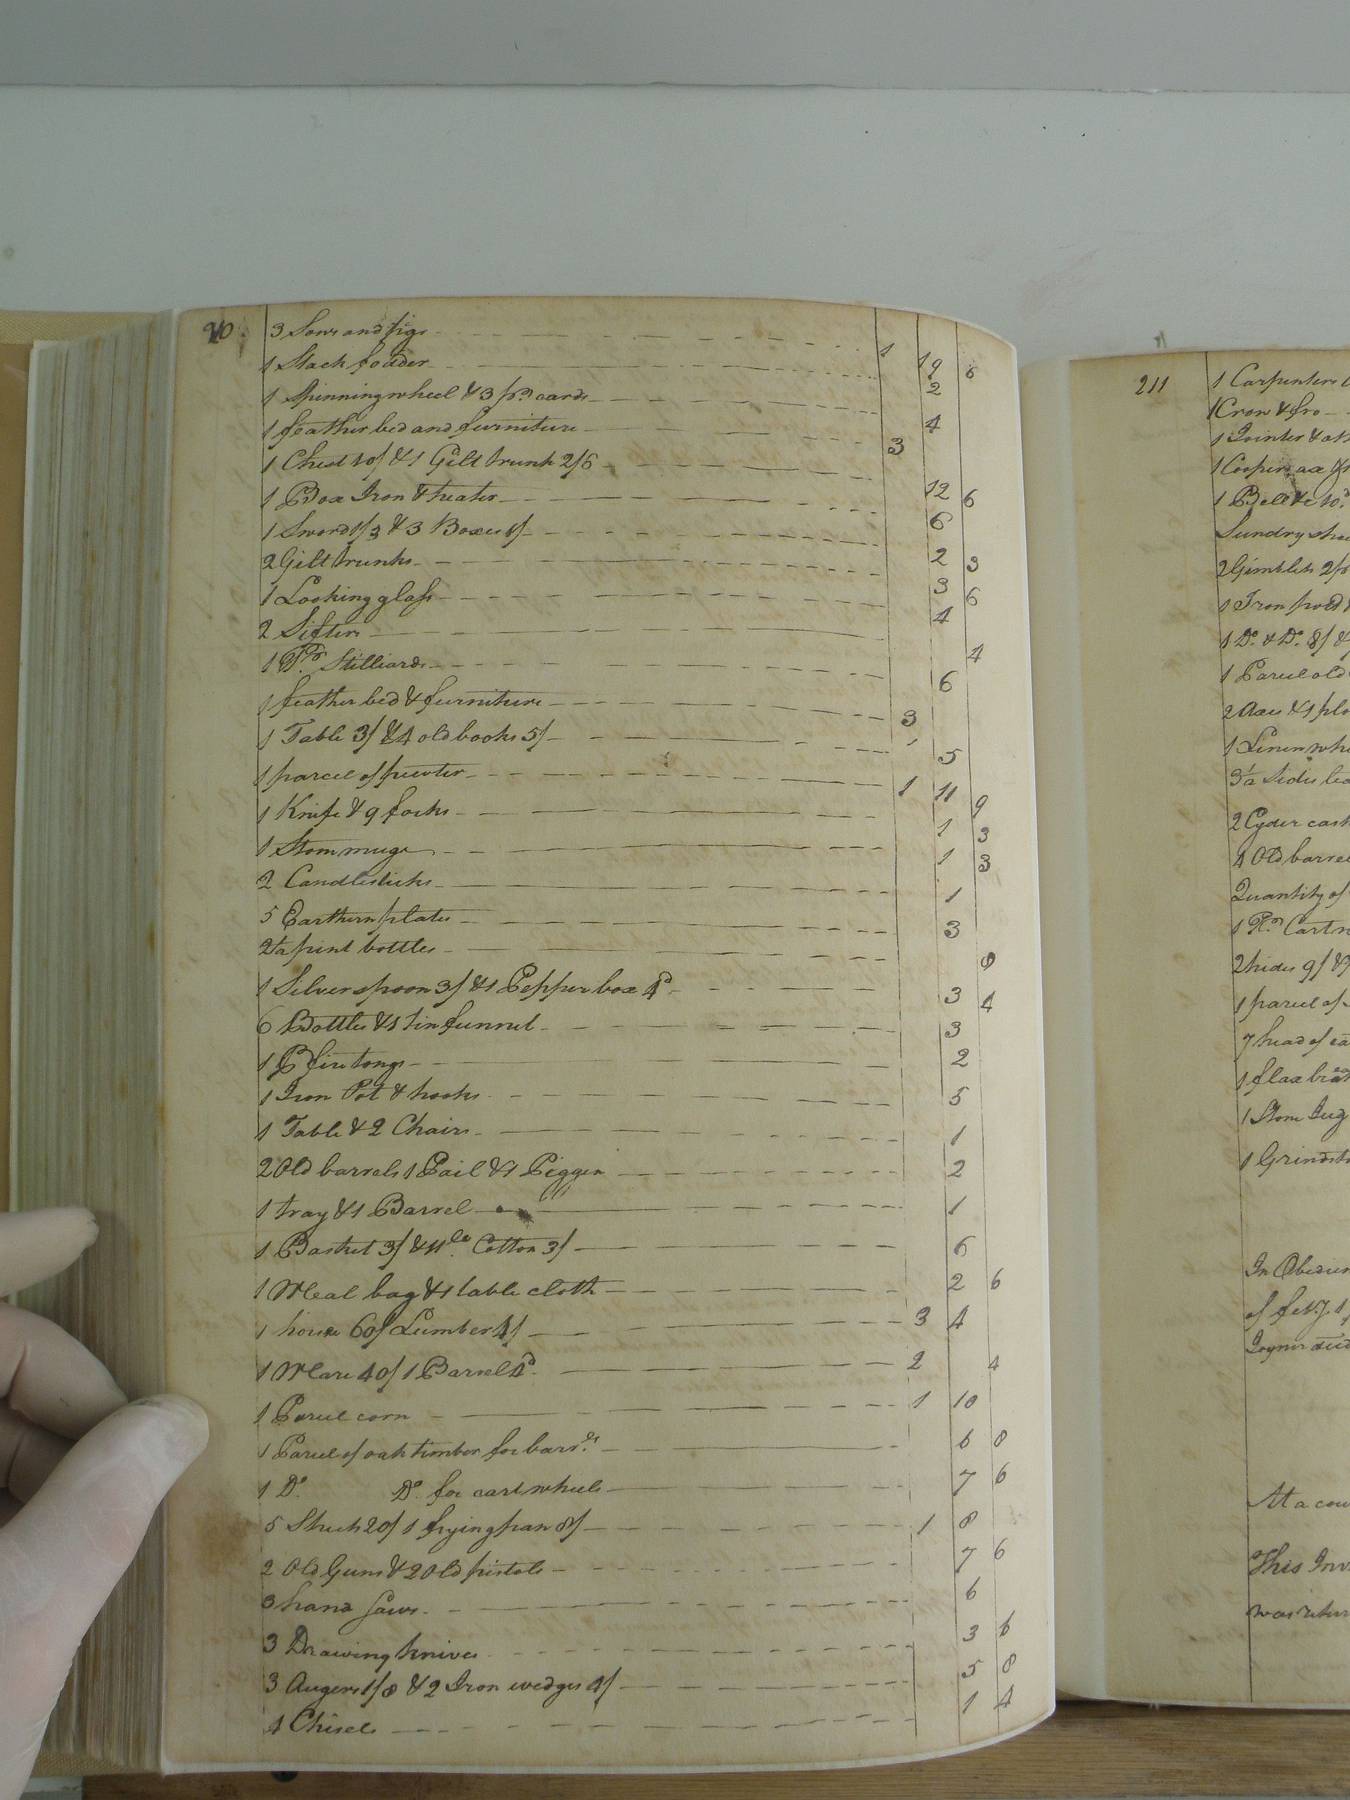 210
3 Sows and pigs 1 19 6
1 Stack fodder 2
1 Spinning wheel & 3 pr. cards 4
1 feather bed and furniture 3
1 Chest 10/ & 1 Gilt trunk 2/6 12 6
1 Box Iron & heater 6
1 Sword 1/3 & 3 Boxes 1/ 2 3
2 Gilt trunks 3 6
1 Looking glass 4
2 Sifters 4
1 Pr. Stilliards 6
1 feather bed & furniture 3
1 Table 3/ & 4 old books 5/ 5
1 parcel of pewter 1 11 9
1 Knife & 9 forks 1 3
1 Stone mugs 1 3
2 Candlesticks 1
5 Earthern plates 3
2 ½ pint bottles 9
1 Silver spoon 3/ & 1 Pepper box 4d 3 4
6 Bottles & 1 tin funnel 3
1 P fire tongs 2
1 Iron Pot & hooks 5
1 Table & 2 Chairs 1
2 Old barrels 1 Pail & 1 Piggen 2
1 tray & 1 Barrel 1
1 Basket 3/ & 11 lb. Cotton 3/ 6
1 Meal bag & 1 table cloth 2 6
1 horse 60/ Lumber 4/ 3 4
1 Mare 40/ 1 Barrel 4d 2 4
1 Parcel corn 1 10
1 Parcel of oak timber for barrls. 6 8
1 Do. Do. for cart wheels 7 6
5 20/ 1 frying pan 8/ 1 8
2 Old Guns & 2 Old pistols 7 6
3 hand Saws 6
3 Drawing knives 3 6
3 Augers 1/8 & 2 Iron wedges 4/ 5 8
4 Chisels 1 4
211
1 Carpenters
1 Crow & fro
1 Jointer &
1 Coopers ax &
1 Bell &c 10
Sundry
2 Gimblets 2/
1 Iron
1 Do. & Do. 8/ &
1 Parcel old
2 Axes & 1
1 Linen
3 ½ Sides
2 Cyder
4 Old
Quantity of
1 Pr. Cart
2 hides 9/ &
1 parcel of
7 head of
1 flax
1 Stone Jug
1
In
of feb.y. 1
Joyner
At a
This
was